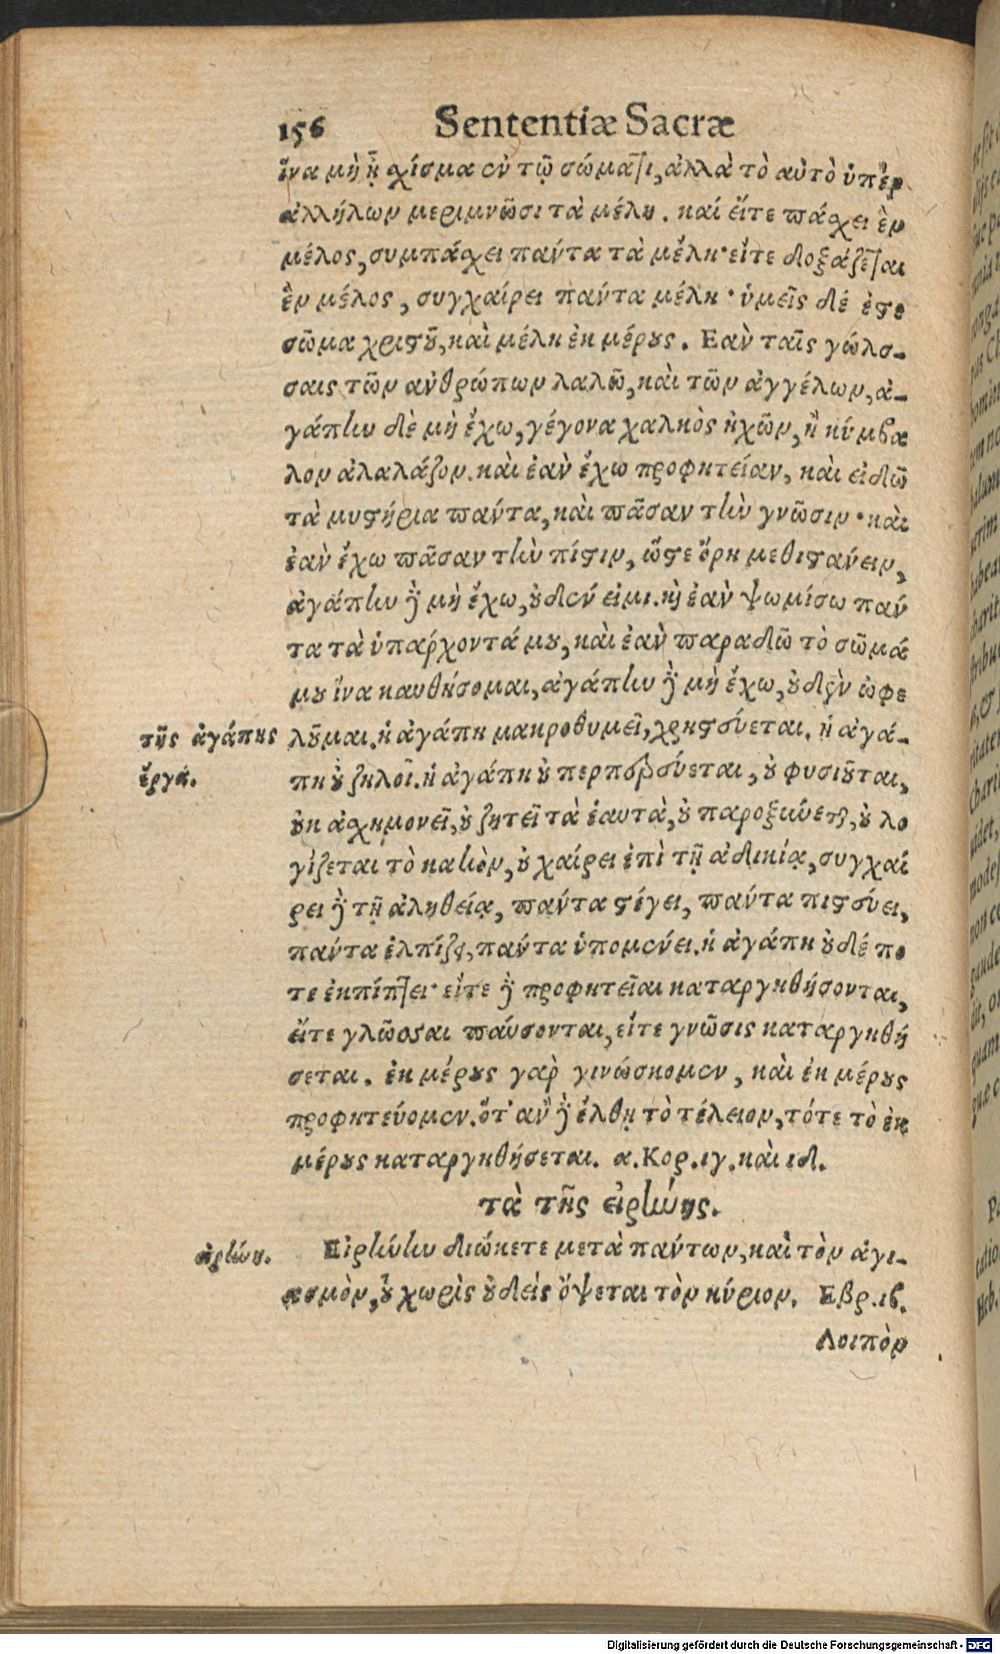 156 Sententiæ Sacræ
ἵνα μὴ ᾖ σχίσμα ἐν τῷ σώματι, ἀλλὰ τὸ αὐτὸ ὑπὲρ
ἀλλήλων μεριμνῶσι τὰ μέλη. καί εἴτε πάσχει ἓν
μέλος, συμπάσχει παντα τὰ μέλη· εἴτε δοξάζεται
ἓν μέλος, συγχαίρει παντα μέλη· ὑμεῖς δέ ἐστε
σῶμα χριστοῦ, καὶ μέλη ἐκ μέρους. Εαν ταῖς γώλσ-
σαις τῶν ανθρώπων λαλῶ, καὶ τῶν ἀγγέλων, ἀ-
γάπην δὲ μὴ ἔχω, γέγονα χαλκὸς ἠχῶν, ἢ κύμβα
λον ἀλαλάζον. καὶ ἐὰν ἔχω προφητείαν, καὶ εἰδῶ
τὰ μυστήρια παντα, καὶ πᾶσαν τὴν γνῶσιν· καὶ
ἐὰν ἔχω πᾶσαν τὴν πίστιν, ὥστε ὄρη μεθιστάνειν,
ἀγάπην δὲ μὴ ἔχω, οὐδέν εἰμι. καὶ ἐὰν ψωμίσω παν
τα τὰ ὑπάρχοντά μου, καὶ ἐὰν παραδῶ τὸ σῶμά
μου ἵνα καυθήσομαι, ἀγάπην δὲ μὴ ἔχω, οὐδὲν ὠφε
τῆς ἀγάπης λοῦμαι. ἡ ἀγάπη μακροθυμεῖ, χρηστεύεται. ἡ ἀγά-
ἔργα. πη οὐ ζηλοῖ. ἡ ἀγάπη οὐ περπερεύεται, οὐ φυσιοῦται,
οὐκ ἀσχημονεῖ, οὐ ζητεῖ τὰ ἑαυτὰ, οὐ παροξύνεται, οὐ λο
γίζεται τὸ κακὸν, οὐ χαίρει ἐπὶ τῇ ἀδικίᾳ, συγχαί
ρει δὲ τῇ ἀληθείᾳ, πάντα στέγει, πάντα πιστεύει,
πάντα ἐλπίζει, πάντα ὑπομένει. ἡ ἀγάπη οὐδέ πο
τε ἐκπίπτει· εἴτε δὲ προφητεῖαι καταργηθήσονται,
εἴτε γλῶσσαι παύσονται, εἴτε γνῶσις καταργηθή
σεται. ἐκ μέρους γαρ γινώσκομεν, καὶ ἐκ μέρους
προφητεύομεν. ὅτ' ἂν δὲ ἔλθῃ τὸ τέλειον, τότε τὸ ἐκ
μέρους καταργηθήσεται. α. Κορ. ιγ. καὶ ιδ.
τὰ τῆς εἰρήνης.
εἰρήνη. Εἰρήνην διώκετε μετὰ παντων, καὶ τὸν ἁγι-
ασμὸν, οὗ χωρὶς οὐδεὶς ὄψεται τὸν κύριον. Εβρ. ιβ.
Λοιπὸν
Digitalisierung gefördert durch die Deutsche Forschungsgemeinschaft - DFG